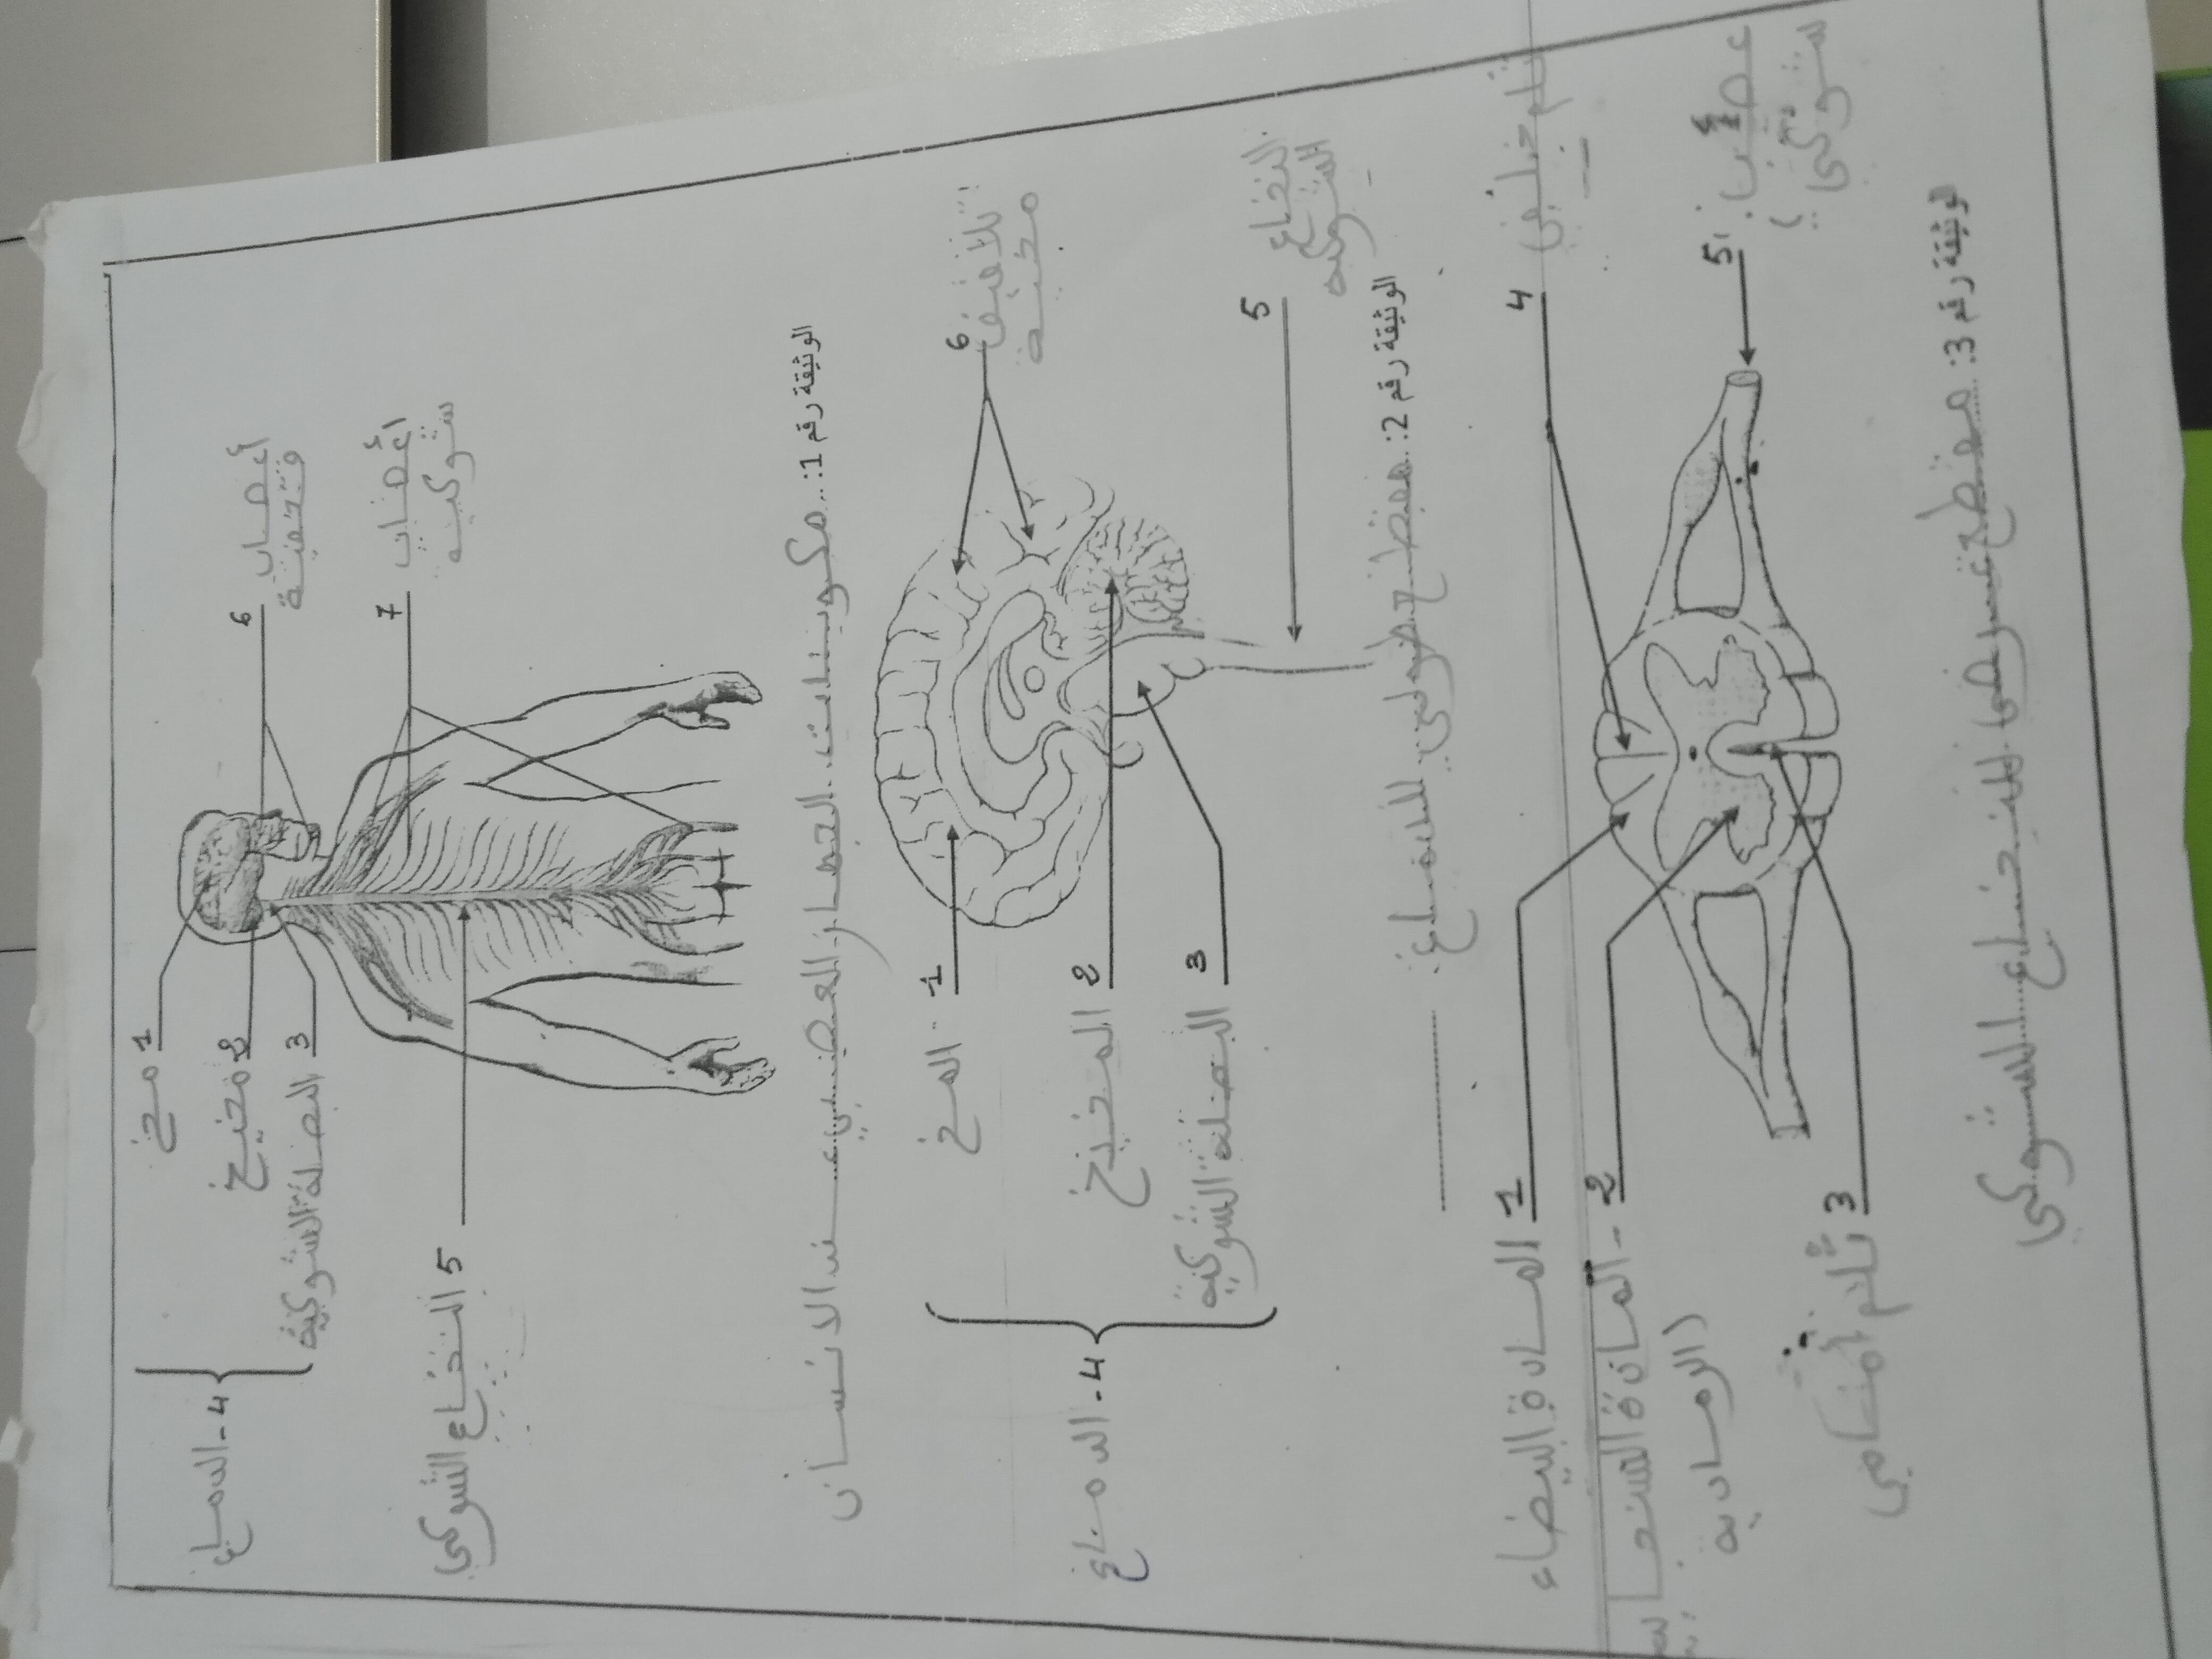 مخ 1
مخيخ 2
البصلة الشوكية 3
4 - الدماغ
النخاع الشوكي 5
6
أعصاب
قحفية
7
أعصاب
شوكية
الوثيقة رقم 1: مكونات الجهاز العصبي عند الانسان
1 - المخ
المخيخ 2
البصلة الشوكية 3
4 - الدماغ
6
تلافيف
مخية
5
النخاع
الوثيقة رقم 2: مقطع طولي للدماغ
المادة البيضاء 1
2 - المادة السنجابية
(الرمادية
ثلم أمامي 3
4
ثلم خلفي
5
عصب
شوكي
الوثيقة رقم 3: مقطع عرضي للنخاع الشوكي